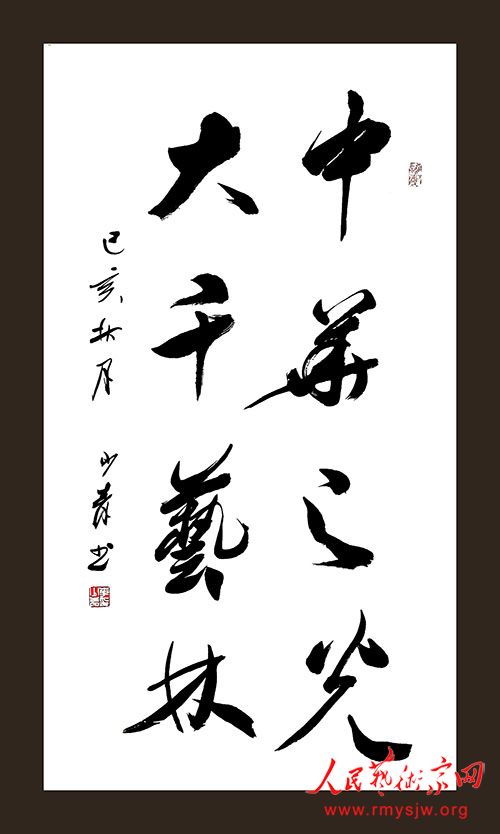 中華之光
大千藝林
己亥秋月 少青书
人民藝術家网
www.rmysjw.org